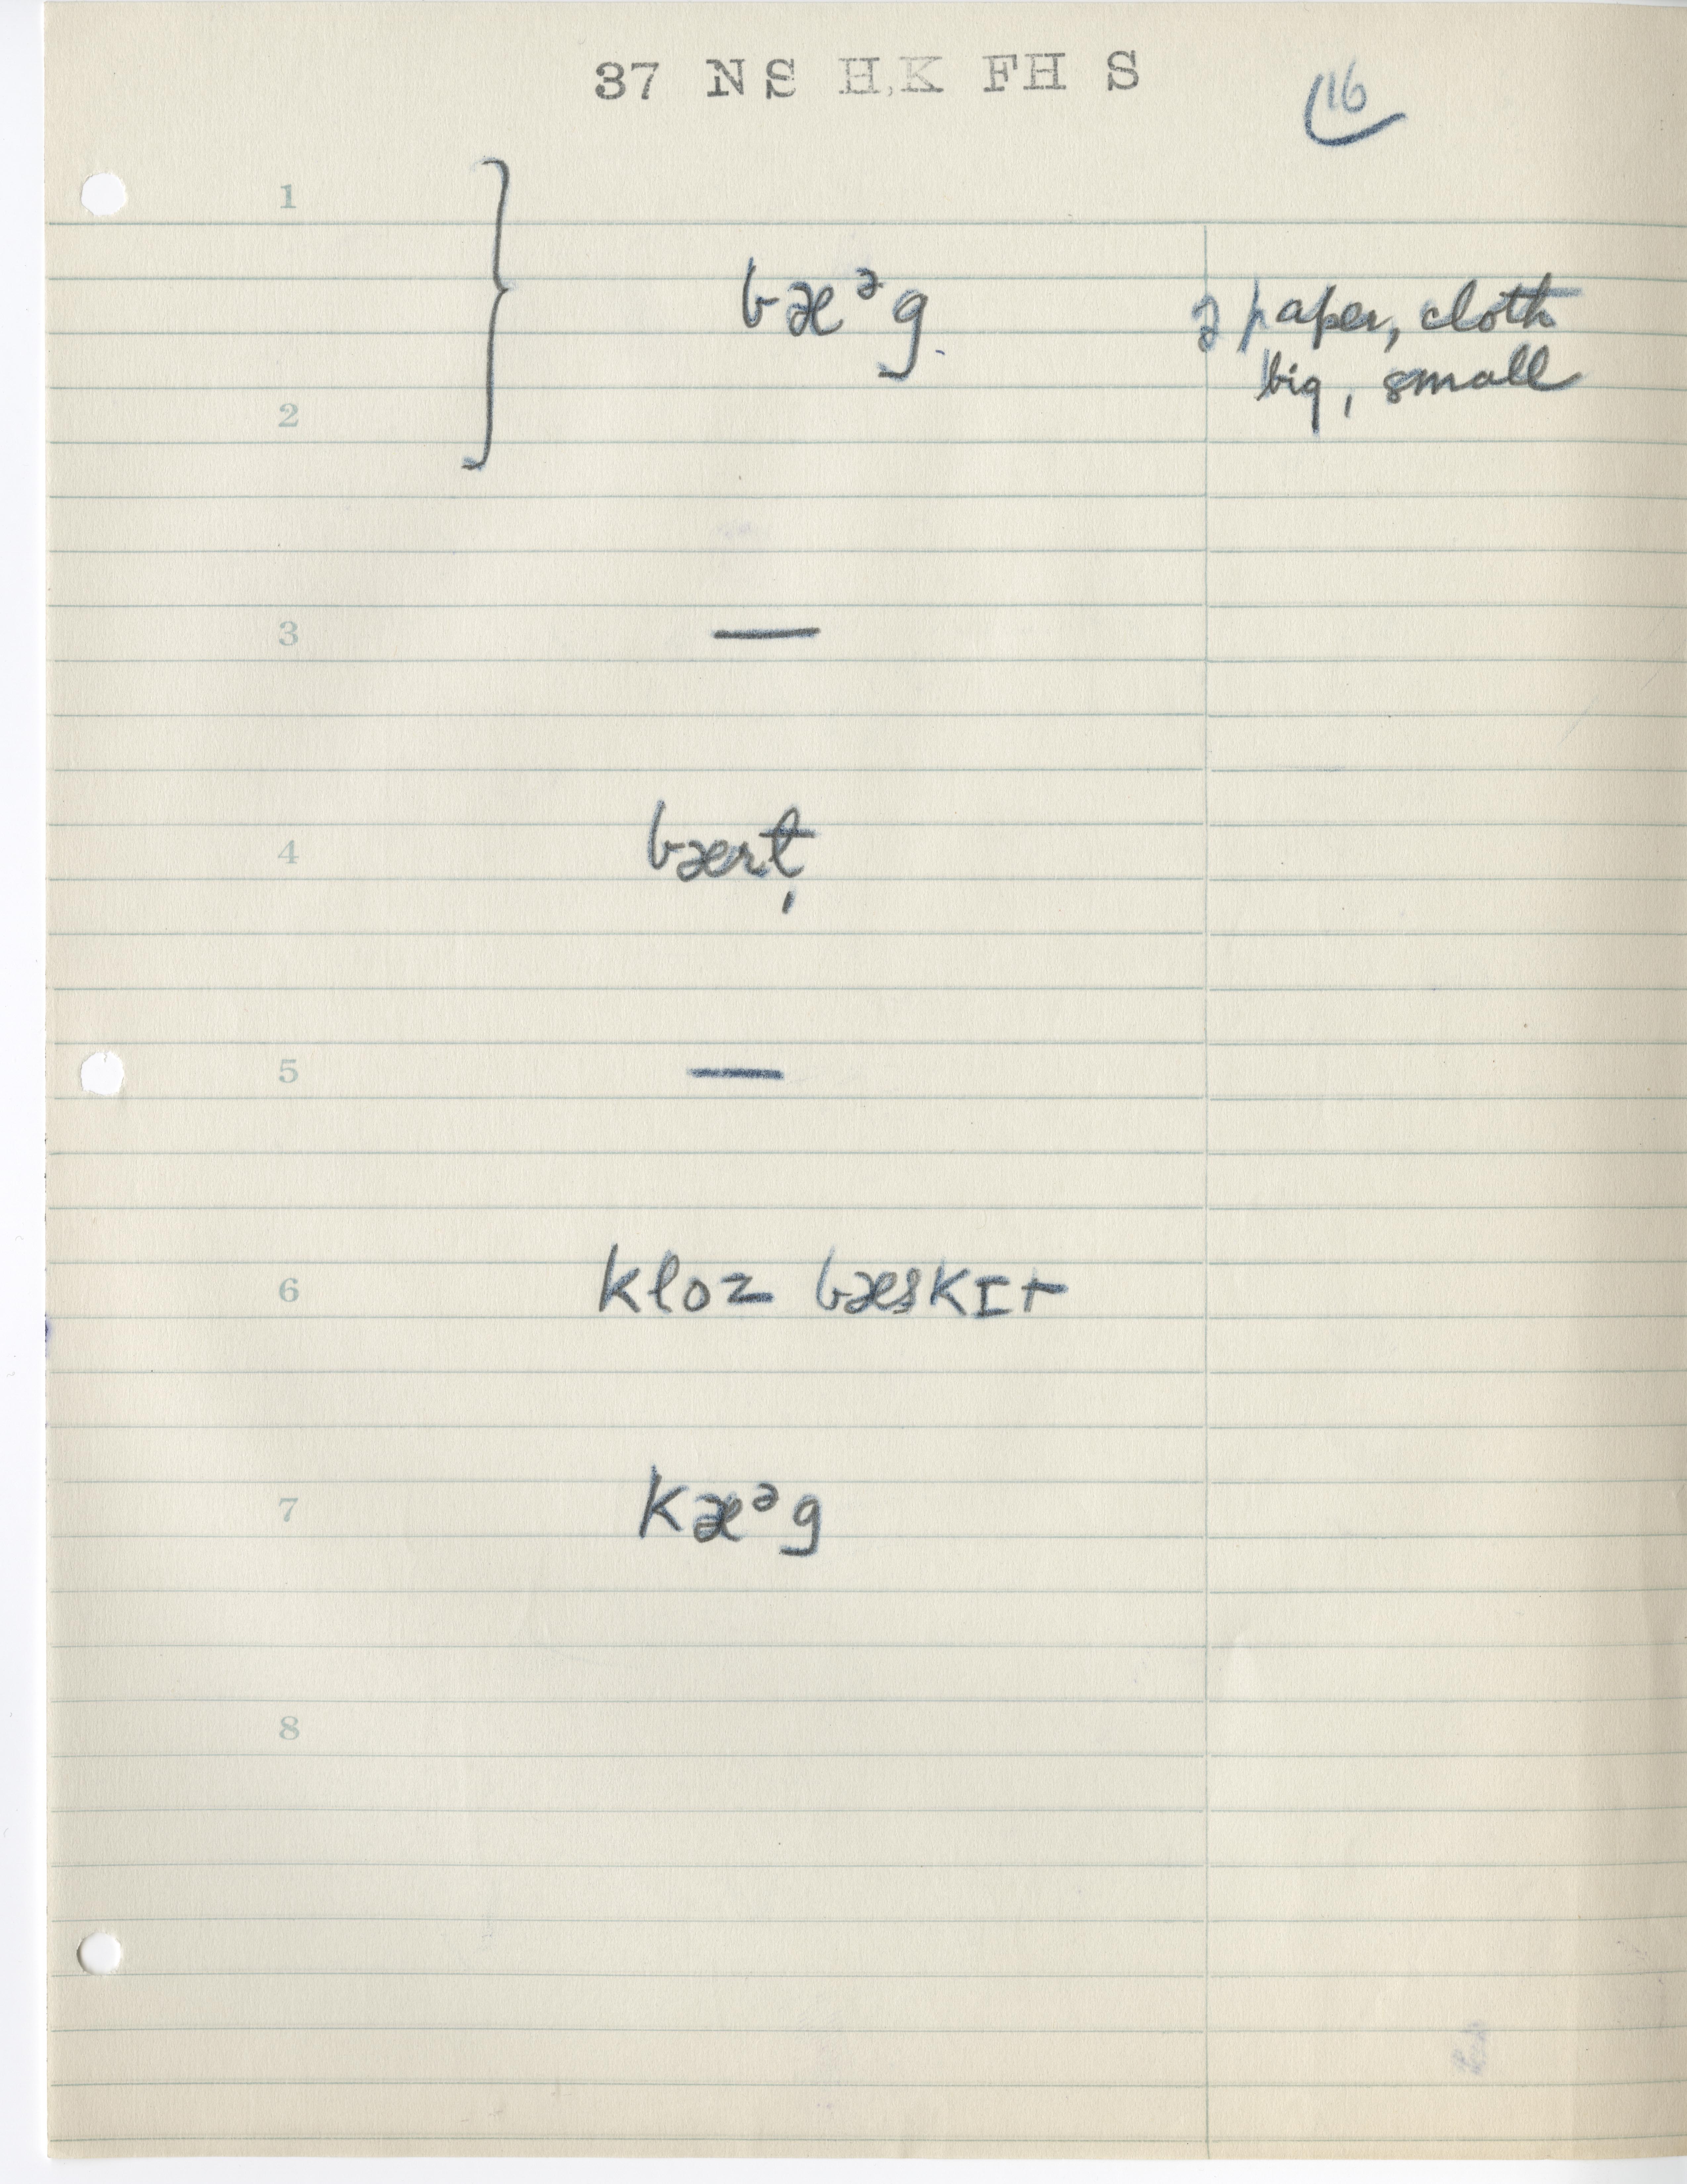 37 NS H,K FH S
16
1
bæᵊg
ə paper, cloth
big, small
2
3 —
4 bært̗
5 —
6 kloz bæskɪt
7 kæᵊg
8